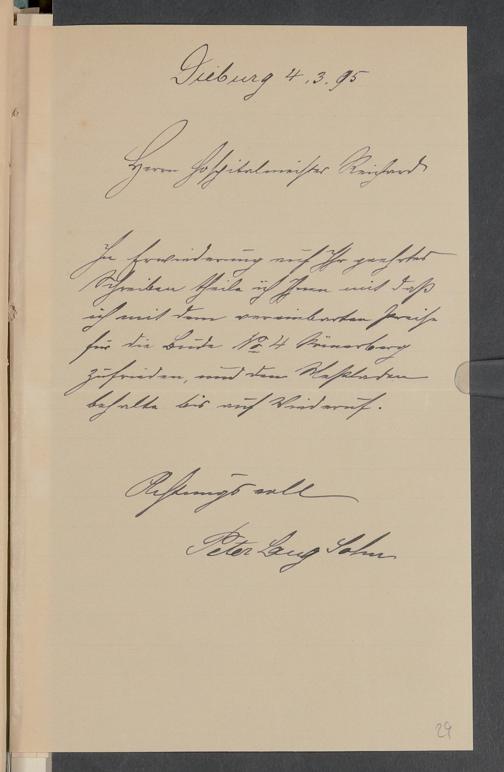 Dieburg 4.3.95
Herrn Hospitalmeister Reichard
In Erwiederung auf Ihr geehrtes
Schreiben theile ich Ihnen mit daß
ich mit dem vereinbarten Preise
für die Bude No 4 Römerberg
zufrieden, und den Meßladen
behalte bis auf Wiederruf.
Achtungsvoll
Peter Lang Sohn
29